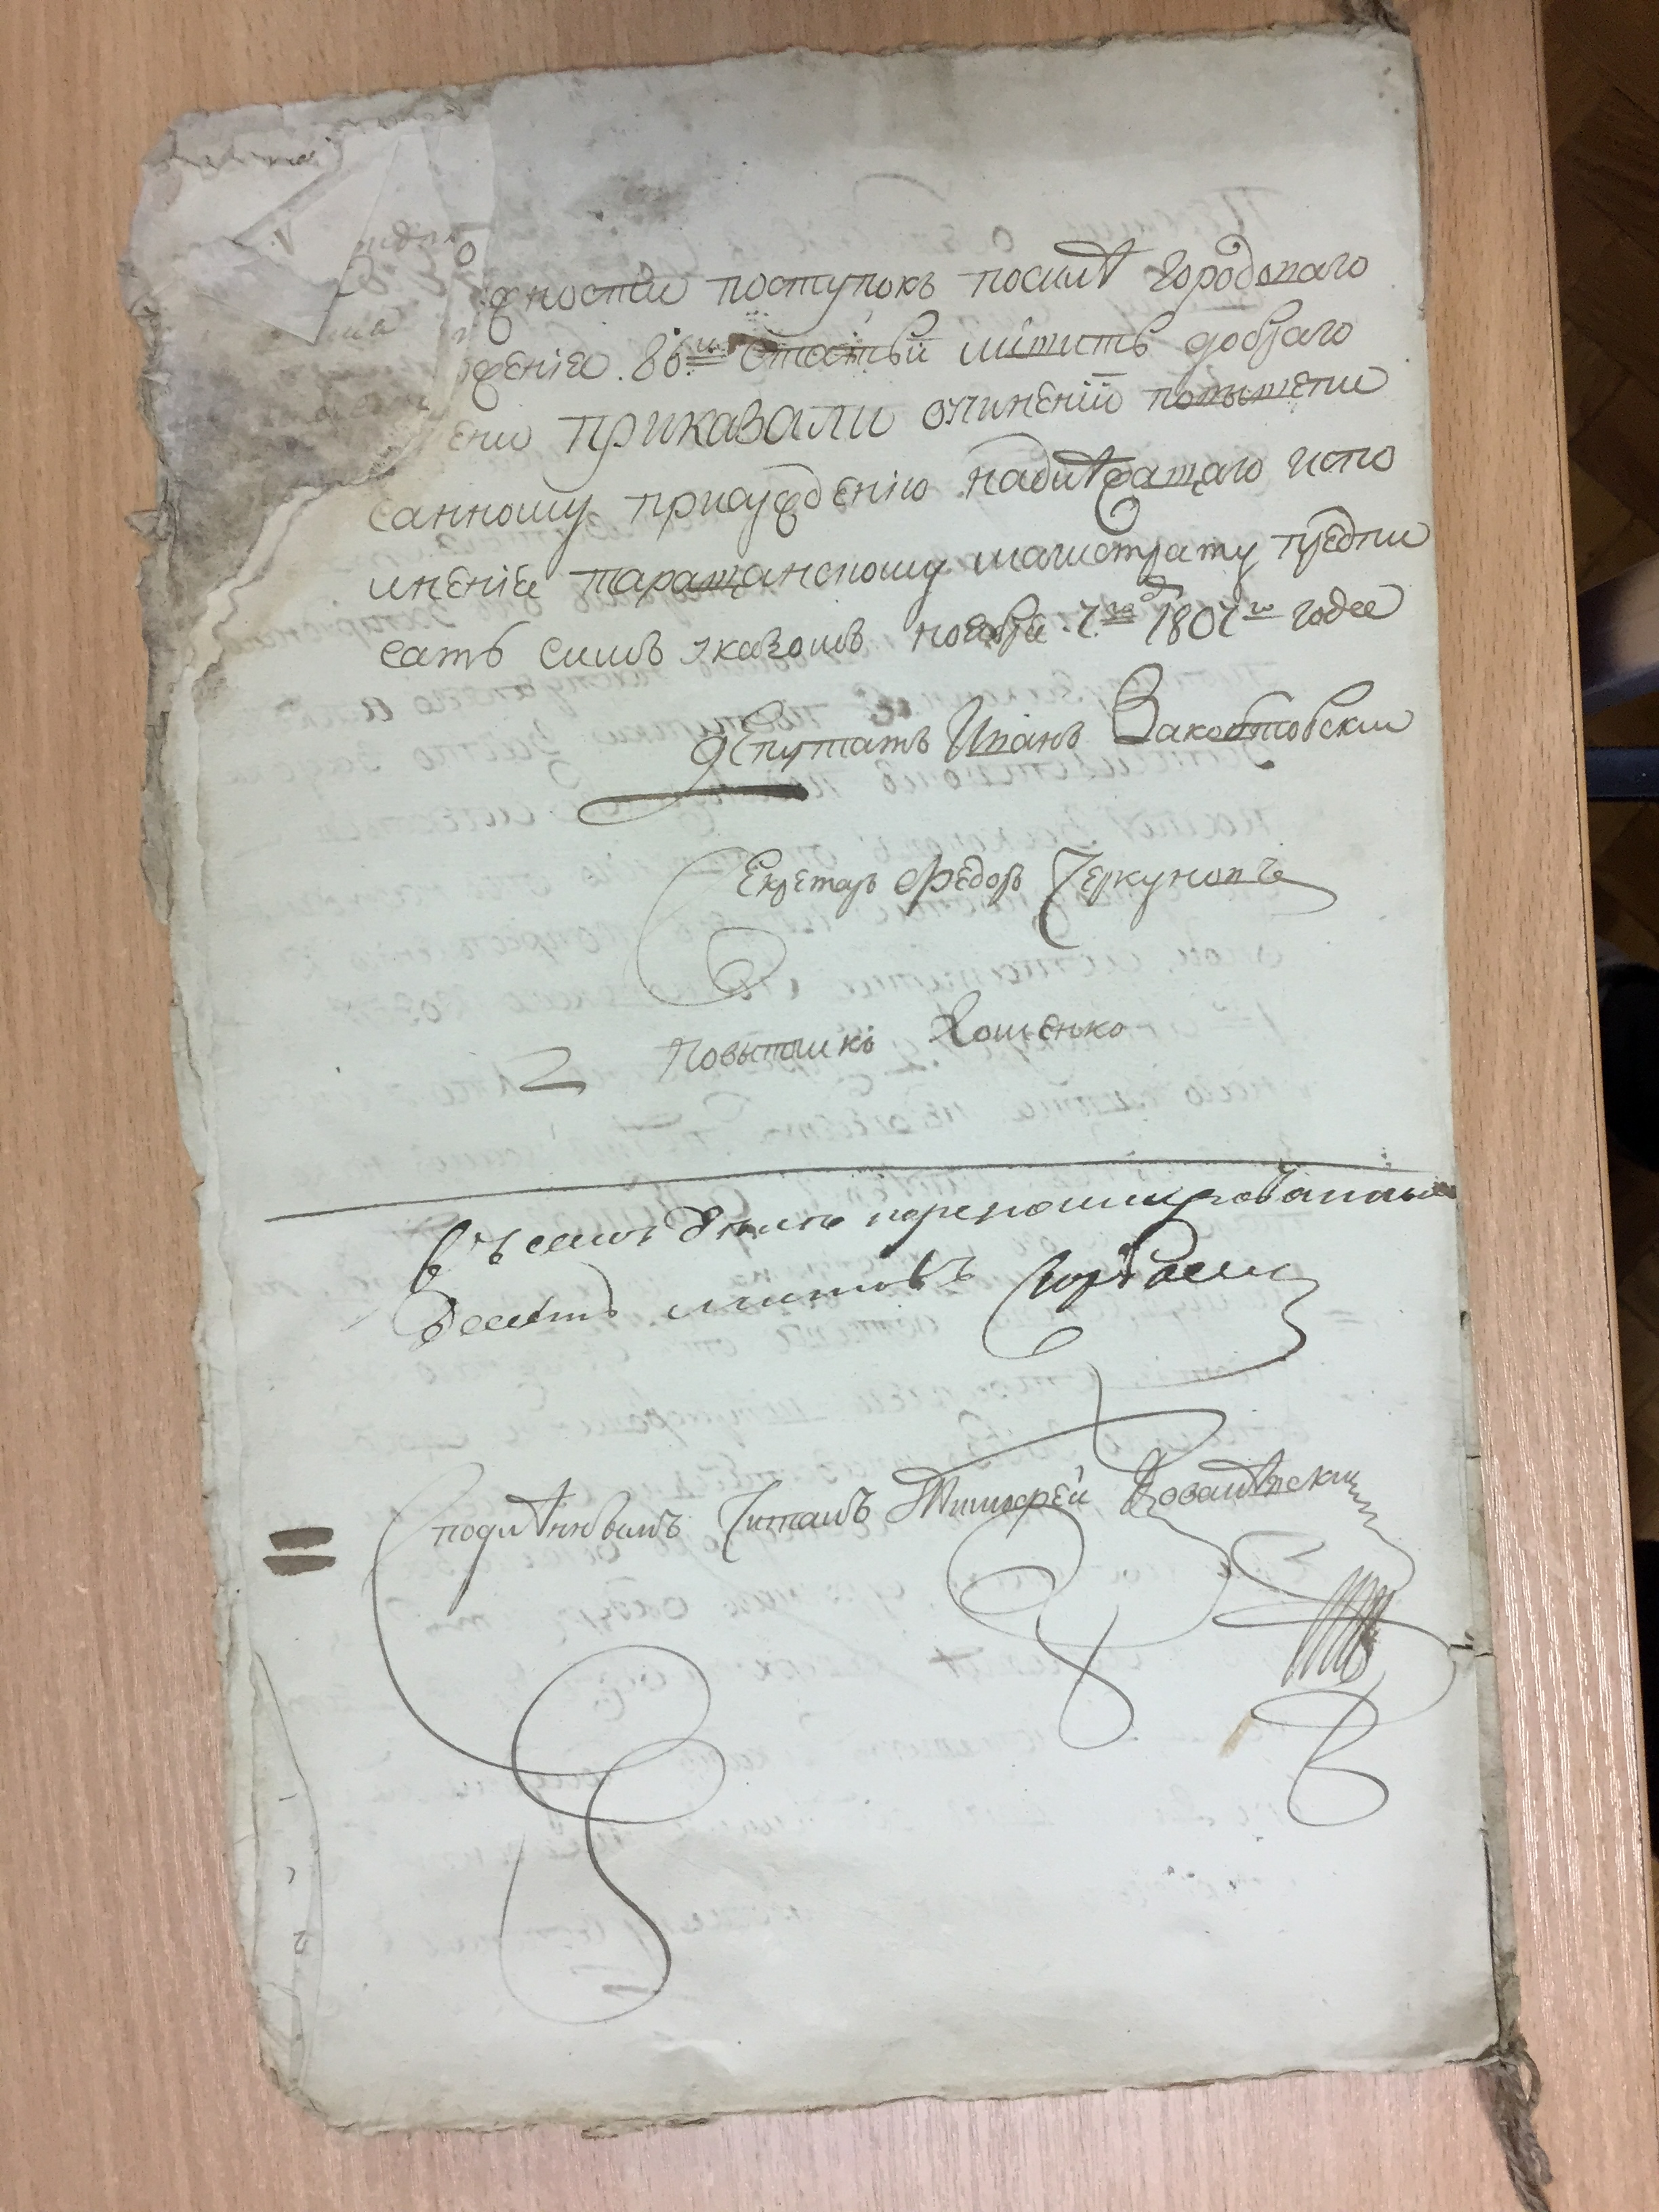 дности поступокъ посилѣ городоваго
дение 86й статьи лишить добраго
ени приказали очинении повышепи
санному присуждению надлѣжащаго испо
лнение таращанскому магистрату предпи
сать симъ указомъ ноября 7го д 1807го года
депутатъ Иванъ Закобтовски
Секретарь Федоръ Черкуновъ
Повытчикъ Хоменко
Въ семъ делѣ перенумерованныхъ
десять листовъ
подлѣннымъ читалъ Тимофей Ковалѣвски